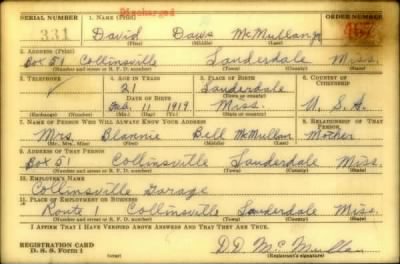 Discharged
SERIAL NUMBER 1. NAME (Print) ORDER NUMBER
331 David Daws McMullan Jr
(First) (Middle) (Last)
2. ADDRESS (Print)
Box 51 Collinsville Lauderdale Miss.
(Number and street or R. F. D. number) (Town) (County) (State)
3. TELEPHONE 4. AGE IN YEARS 5. PLACE OF BIRTH 6. COUNTRY OF CITIZENSHIP
21 Lauderdale
DATE OF BIRTH (Town or county)
11 1919 Miss. U. S. A.
(Exchange) (Number) (Mo.) (Day) (Yr.) (State or country)
7. NAME OF PERSON WHO WILL ALWAYS KNOW YOUR ADDRESS 8. RELATIONSHIP OF THAT PERSON
Mrs. Blannie Bell McMullan Mother
(Mr., Mrs., Miss) (First) (Middle) (Last)
9. ADDRESS OF THAT PERSON
Box 51 Collinsville Lauderdale Miss.
(Number and street or R. F. D. number) (Town) (County) (State)
10. EMPLOYER'S NAME
Collinsville Garage
11. PLACE OF EMPLOYMENT OR BUSINESS
Route 1 Collinsville Lauderdale Miss.
(Number and street or R. F. D. number) (Town) (County) (State)
I AFFIRM THAT I HAVE VERIFIED ABOVE ANSWERS AND THAT THEY ARE TRUE.
REGISTRATION CARD
D. S. S. Form 1 D.D. McMullan
(Registrant's signature)